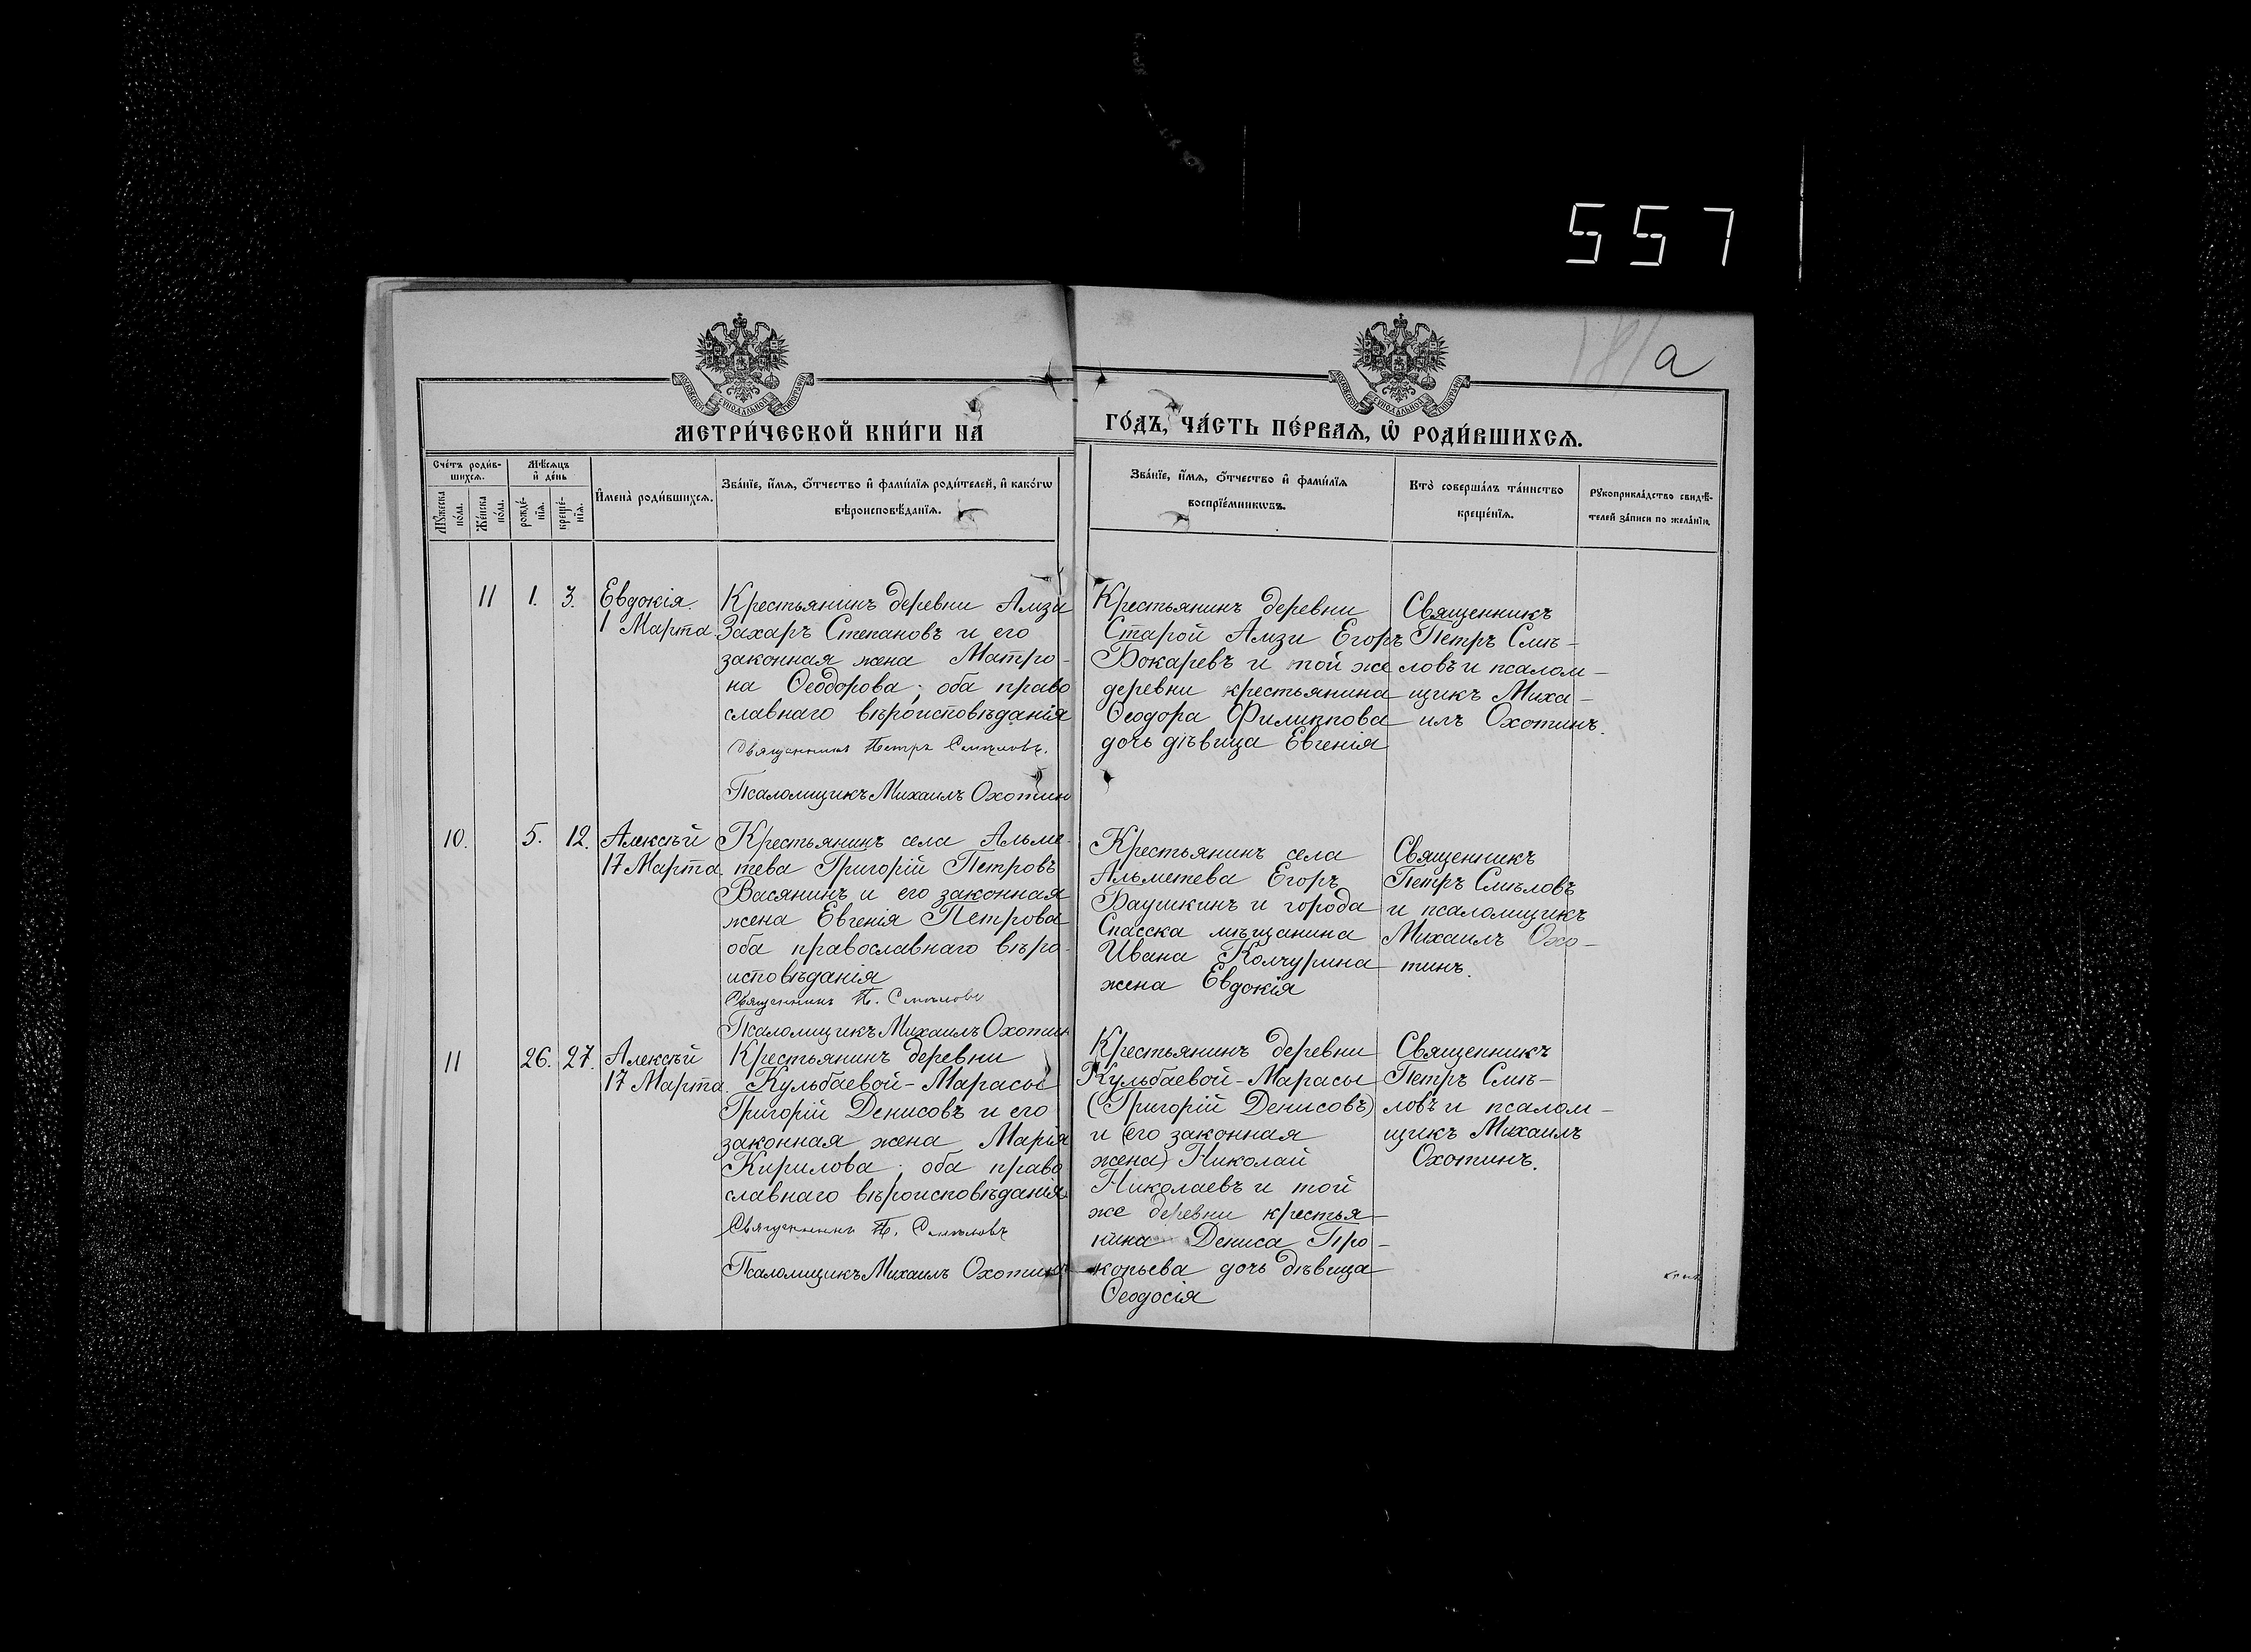 557
181 а
МОСКОВСКОЙ СѴНОДАЛЬНОЙ ТИПОГРАФІИ
МОСКОВСКОЙ СѴНОДАЛЬНОЙ ТИПОГРАФІИ
МЕТРИ́ЧЕСКОЙ КНИ́ГИ НА
ГО́ДЪ, ЧА́СТЬ ПЕ́РВАѦ, Ѡ҆ РОДИ́ВШИХСѦ.
Сче́тъ роди́в-
шихсѧ.
Мѣ́сѧцъ
и҆ де́нь
Мꙋ́жеска
по́ла.
Же́нска
по́ла.
рожде́-
нїѧ.
креще́-
нїѧ.
И҆мена̀ роди́вшихсѧ.
Зва́нїе, и҆́мѧ, ѻ҆́тчество и҆ фами́лїѧ роди́телей, и҆ како́гѡ
вѣроисповѣ́данїѧ.
Зва́нїе, и҆́мѧ, ѻ҆́тчество и҆ фами́лїѧ
воспрїе́мникѡвъ.
Кто̀ соверша́лъ та́инство
креще́нїѧ.
Рꙋкоприкла́дство свидѣ́-
телей за́писи по жела́нїю.
11 1. 3. Евдокія.
1 Марта
Крестьянинъ деревни Амзи
Захаръ Степановъ и его
законная жена Матро-
на Ѳеодорова; оба право
славнаго вѣроисповѣданія
Священникъ Петръ Смѣловъ.
Псаломщикъ Михаилъ Охотин
Крестьянинъ деревни
Старой Амзи Егоръ
Бокаревъ и той же
деревни крестьянина
Ѳеодора Филиппова
дочь дѣвица Евгенія
Священникъ
Петръ Смѣ-
ловъ и псалом-
щикъ Миха-
илъ Охотинъ.
10. 5. 12. Алексѣй
17 Марта.
Крестьянинъ села Альме-
тева Григорій Петровъ
Васянинъ и его законная
жена Евгенія Петрова
оба православнаго вѣро-
исповѣданія
Священникъ П. Смѣловъ
Псаломщикъ Михаилъ Охотин
Крестьянинъ села
Альметева Егоръ
Баушкинъ и города
Спасска мѣщанина
Ивана Колчурина
жена Евдокія
Священникъ
Петръ Смѣловъ
и псаломщикъ
Михаилъ Охо-
тинъ.
11 26. 27. Алексѣй
17 Марта.
Крестьянинъ деревни
Кульбаевой-Марасы
Григорій Денисовъ и его
законная жена Марія
Кирилова; оба право
славнаго вѣроисповѣданія
Священникъ П. Смѣловъ
Псаломщикъ Михаилъ Охотинъ
Крестьянинъ деревни
Кульбаевой-Марасы
(Григорій Денисовъ)
и (его законная
жена) Николай
Николаевъ и той
же деревни крестья-
нина Дениса Про-
копьева дочь дѣвица
Ѳеодосія
Священникъ
Петръ Смѣ-
ловъ и псалом-
щикъ Михаилъ
Охотинъ.